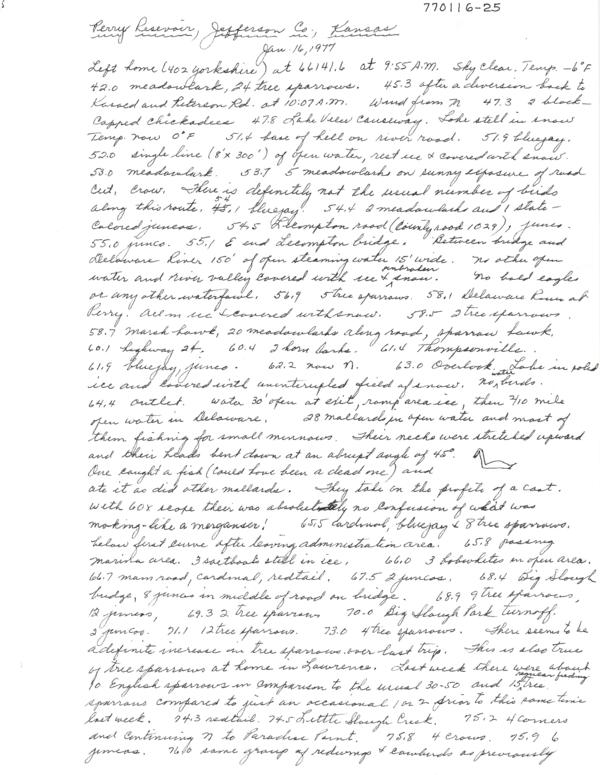 770116-25
Perry Resevoir, Jefferson Co., Kansas
Jan 16, 1977
Left home (402 Yorkshire) at 66141.6 at 9:55 A.M. Sky clear. Temp. -6°F
42.0 meadowlark, 24 tree sparrows. 45.3 after a diversion back to
Kasold and Peterson Rd. at 10:07 A.M. Wind from N 47.3 2 black-
capped chickadees 47.8 Lake View Causeway. Lake still in snow
Temp. now 0°F 51.4 base of hell on river road. 51.9 bluejay.
52.0 single line (8' x 300') of open water, rest ice & covered with snow.
53.0 meadowlark. 53.7 5 meadowlarks on sunny exposure of road
cut, crow. There is definitely not the usual number of birds
along this route. 54.1 bluejay. 54.4 2 meadowlarks and 1 slate-
colored juncos. 54.5 Lecompton road (County road 1029), junco.
55.0 junco. 55.1 E end Lecompton bridge. Between bridge and
Delaware River 150' of open steaming water 15' wide. No other open
water and river valley covered with ice & unbroken snow. No bald eagles
or any other waterfowl. 56.9 5 tree sparrows. 58.1 Delaware River at
Perry. All in ice & covered with snow. 58.5 2 tree sparrows.
58.7 marsh hawk, 20 meadowlarks along road, sparrow hawk.
60.1 highway 24. 60.4 2 horn larks. 61.4 Thompsonville.
61.9 bluejay, junco. 62.2 now N. 63.0 Overlook. Lake in solid
ice and covered with uninterrupted field of snow. No water birds.
64.4 outlet. Water 30' open at exit, ramp area ice, then 2/10 mile
open water in Delaware. 28 mallards in open water and most of
them fishing for small minnows. Their necks were stretched upward
and their heads bent down at an abrupt angle of 45°.
One caught a fish (could have been a dead one) and
ate it as did other mallards. They take on the profile of a coot.
With 60X scope their was absolutely no confusion of what was
making-like a merganser! 65.5 cardinal, bluejay & 8 tree sparrows.
below first curve after leaving administration area. 65.8 passing
marina area. 3 sailboats still in ice. 66.0 3 bobwhites in open area.
66.7 main road, cardinal, redtail. 67.5 2 juncos. 68.4 Big Slough
bridge, 8 juncos in middle of road on bridge. 68.9 9 tree sparrows,
12 juncos, 69.3 2 tree sparrows 70.0 Big Slough Park turnoff.
2 juncos. 71.1 12 tree sparrows. 73.0 4 tree sparrows. There seems to be
a definite increase in tree sparrows over last trip. This is also true
of tree sparrows at home in Lawrence. Last week there were about
10 English sparrows in comparison to the usual 30-50 and 15 tree
sparrows compared to just an occasional 1 or 2 prior to this same time
last week. 74.3 redtail. 74.5 Little Slough Creek. 75.2 4 corners
and continuing N to Paradise Point. 75.8 4 crows. 75.9 6
juncos. 76.0 same group of redwings & cowbirds as previously